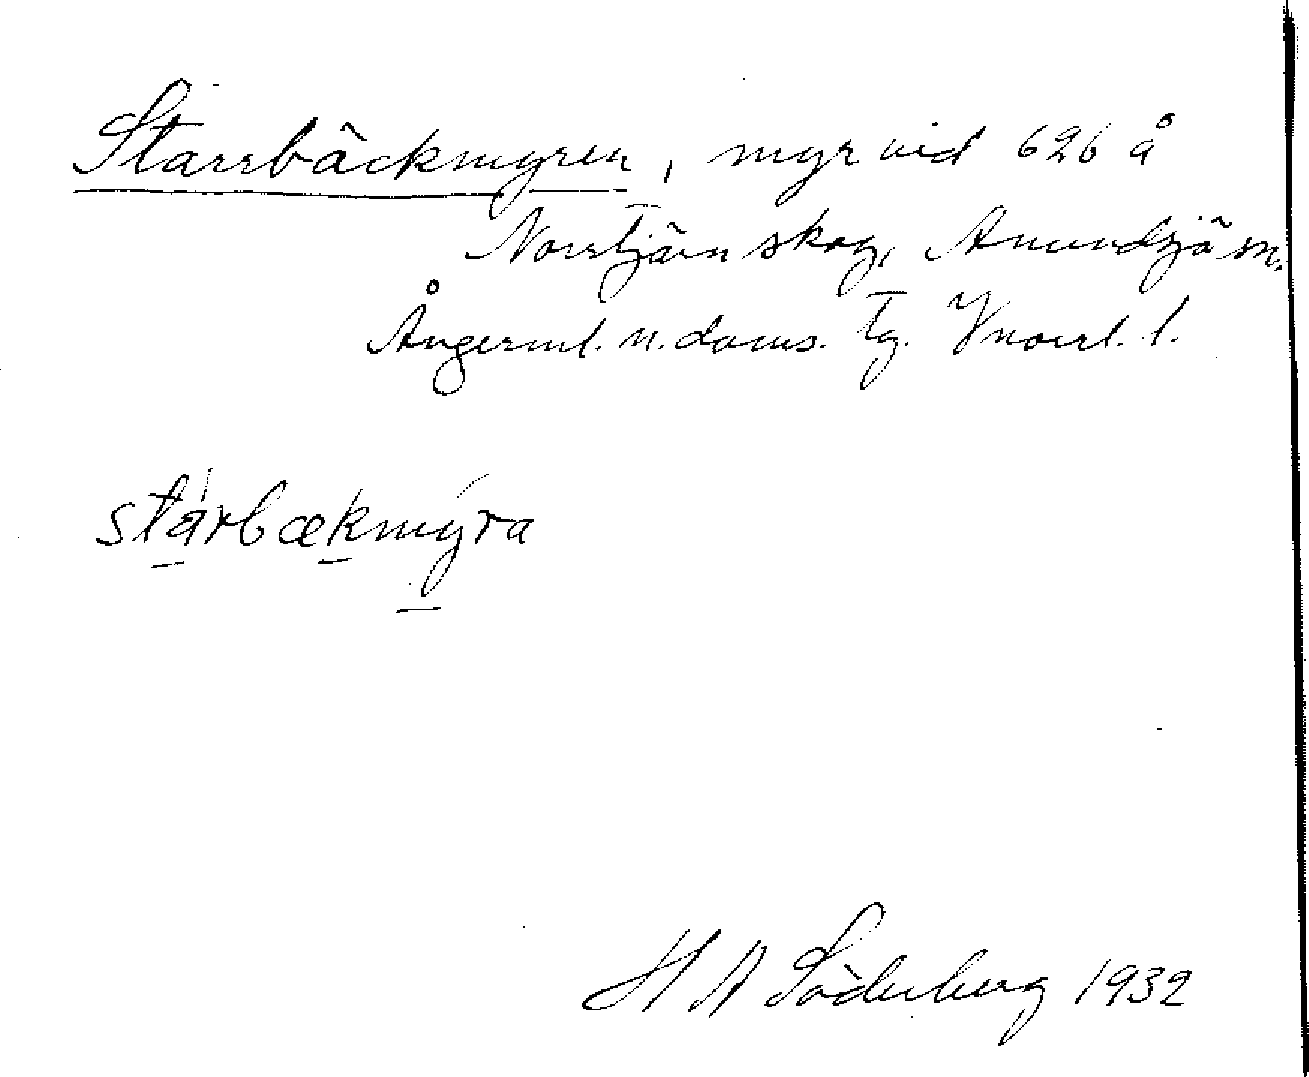 Starrbäckmyren, myr vid 626 å
Norrtjärn skog, Anundsjö sn.
Ångerml. n. doms. tg. Vnorrl. l.
starbækmyra
H A Söderberg 1932